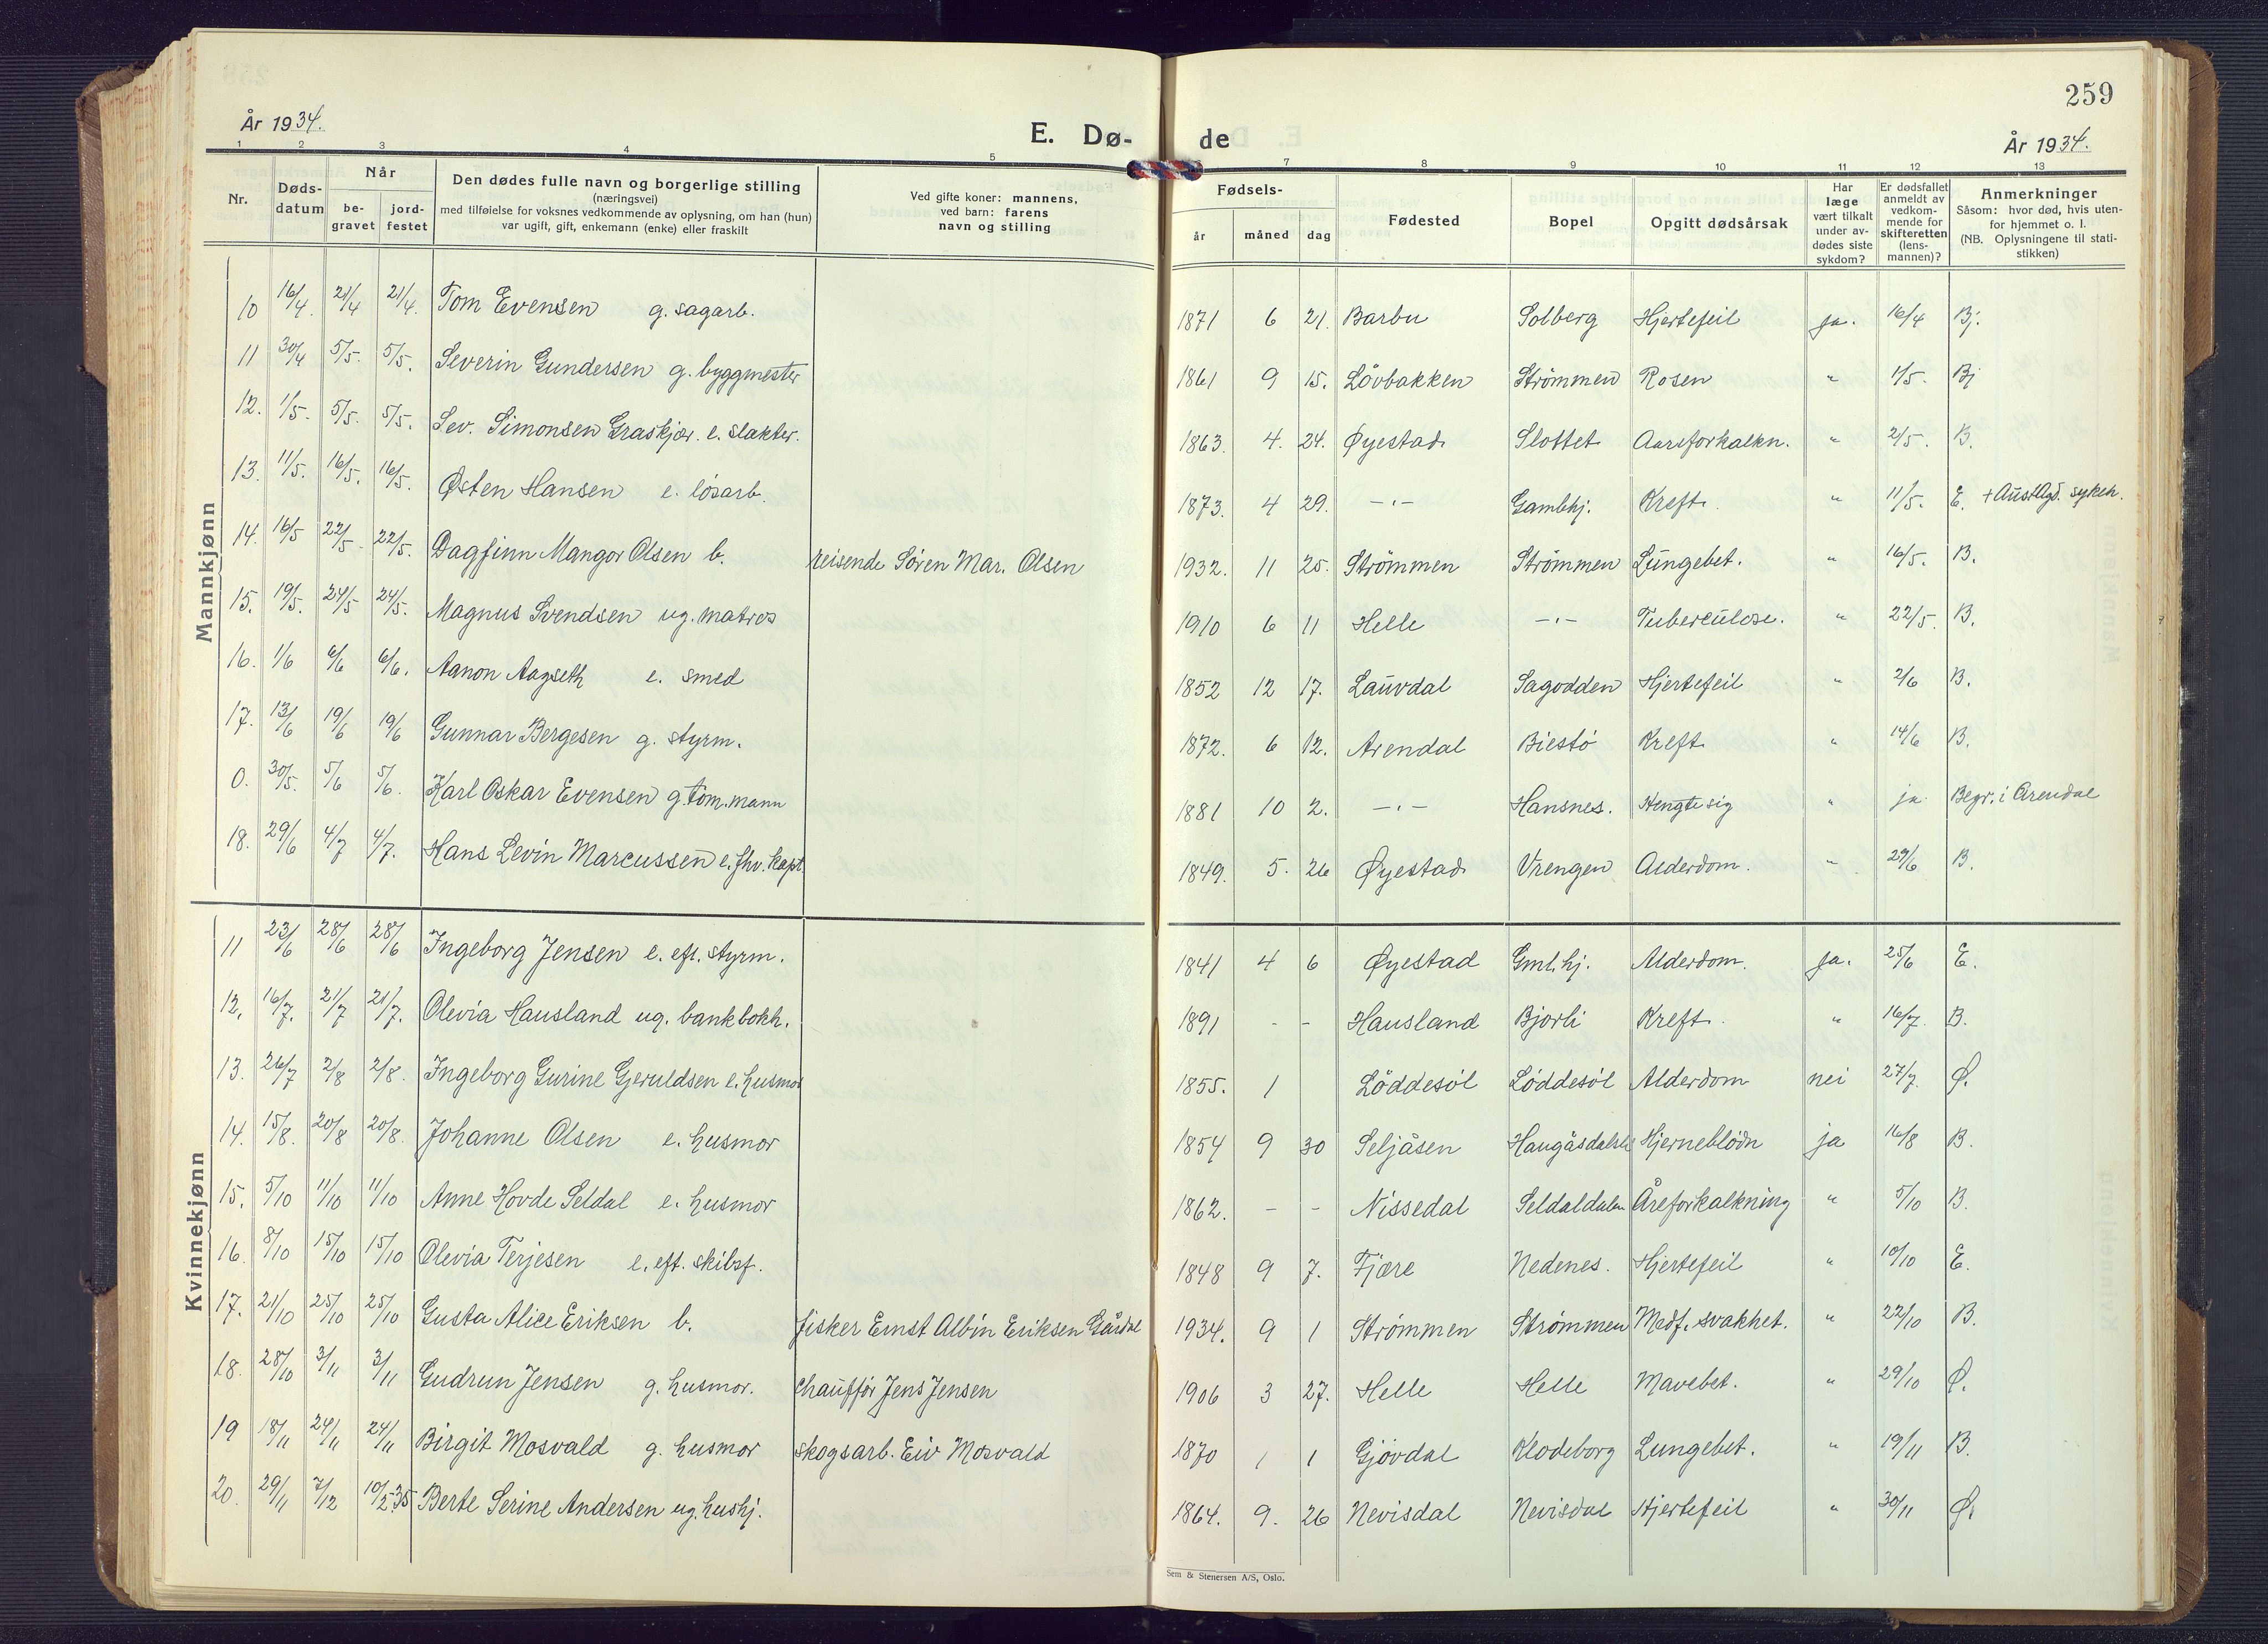 259
År 1934.
E. Dø-
de
År 1934.
1 2 3 4 5 7 8 9 10 11 12 13
Nr.
Døds-
datum
Når
be-
gravet
jord-
festet
Den dødes fulle navn og borgerlige stilling
(næringsvei)
med tilføielse for voksnes vedkommende av oplysning, om han (hun)
var ugift, gift, enkemann (enke) eller fraskilt
Ved gifte koner: mannens,
ved barn: farens
navn og stilling
Fødsels-
år måned dag
Fødested
Bopel
Opgitt dødsårsak
Har
læge
vært tilkalt
under av-
dødes siste
sykdom?
Er dødsfallet
anmeldt av
vedkom-
mende for
skifteretten
(lens-
mannen)?
Anmerkninger
Såsom: hvor død, hvis uten-
for hjemmet o. l.
(NB. Oplysningene til stati-
stikken)
Mannkjønn
10 16/4. 21/4 21/4. Tom Evensen g. sagarb. 1871 6 21. Barbu Solberg Hjertefeil ja. 16/4 Bj.
11 30/4 5/5. 5/5. Severin Gundersen g. byggmester 1861 9 15. Lövbakken Strömmen Rosen " 1/5. Bj
12. 1/5. 5/5. 5/5. Sev. Simonsen Graskjær. e. slakter. 1863. 4. 24. Øyestad Slottet Aareforkalkn. " 2/5. B.
13. 11/5. 16/5. 16/5. Østen Hansen e. lösarb. 1873. 4 29. -"- Gamlhj. Kreft. " 11/5. E. + AustAgd. sykeh.
14. 16/5 22/5. 22/5. Dagfinn Mangor Olsen b. reisende Sören Mar. Olsen 1932. 11 25. Strömmen Strömmen Lungebet. " 16/5. B.
15. 19/5. 24/5 24/5. Magnus Svendsen ug. matros 1910 6 11 Helle -"- Tuberculose. " 22/5. B.
16. 1/6 6/6 6/6. Aanon Aagseth e. smed 1852 12 17. Lauvdal Sagodden Hjertefeil " 2/6 B.
17. 13/6 19/6 19/6 Gunnar Bergesen g. styrm. 1872. 6 12. Arendal Biestö Kreft " 14/6 B.
0. 30/5. 5/6 5/6. Karl Oskar Evensen g. töm.mann 1881 10 2. -"- Hansnes. Hengte sig " ja Begr. i Arendal
18. 29/6 4/7 4/7. Hans Levin Marcussen e. fhv. kapt. 1849. 5. 26 Øyestad Vrengen Alderdom. " 29/6 B.
Kvinnekjønn
11 23/6 28/6 28/6 Ingeborg Jensen e. eft. styrm. 1841 4 6 Øyestad Gml.hj. Alderdom. ja. 25/6 E.
12. 16/7. 21/7 21/7. Olevia Hausland ug. bankbokh. 1891 - - Hausland Bjorli Kreft. " 16/7. B.
13. 26/7 2/8 2/8. Ingeborg Gurine Gjeruldsen e. husmor 1855. 1 Löddesöl Löddesöl Alderdom nei 27/7. Ø.
14. 15/8. 20/8 20/8. Johanne Olsen e. husmor 1854 9 30 Seljåsen Hjerneblödn ja 16/8 B.
15. 5/10 11/10 11/10 Anne Hovde Seldal e. husmor 1862. - - Nissedal Seldaldalen Åreforkalkning " 5/10 B.
16. 8/10 15/10 15/10 Olevia Terjesen e. eft. skibsf. 1848 9 7. Fjære Nedenes. Hjertefeil " 10/10 E.
17. 21/10 25/10 25/10 Gusta Alice Eriksen b. fisker Ernst Albin Eriksen Gårdal 1934. 9 1 Strömmen Strömmen Medf. svakhet. " 22/10 B.
18. 28/10 3/11 3/11 Gudrun Jensen g. husmor. Chaufför Jens Jensen 1906 3 27. Helle Helle Mavebet. " 29/10 Ø.
19 18/11 24/11 24/11 Birgit Mosvald g. husmor skogsarb. Eiv Mosvald 1870 1 1 Gjövdal Klodeborg Lungebet. " 19/11 B.
20. 29/11 7/12 10/2-35 Berte Serine Andersen ug. hushj. 1864. 9. 26 Nevisdal Nevisdal Hjertefeil " 30/11 Ø.
Sem & Stenersen A/S, Oslo.